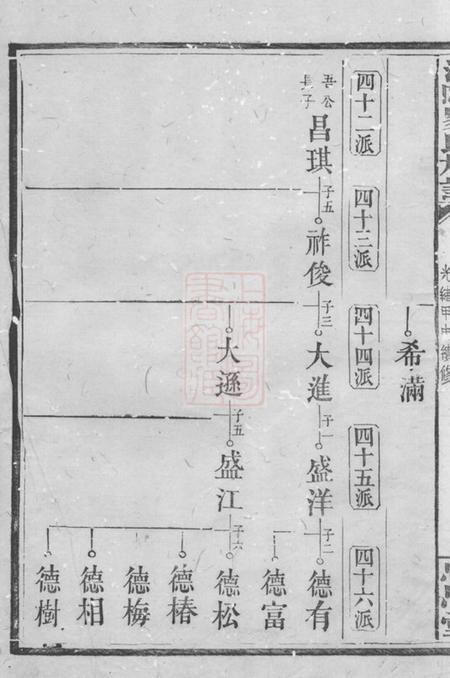 光緒甲申續修
希滿
四十二派
四十三派
四十四派
四十五派
四十六派
吾公長子
昌琪
子五
祚俊
子三
大進
子一
盛洋
子二
德有
德富
大遜
子五
盛江
子六
德松
德椿
德梅
德相
德樹